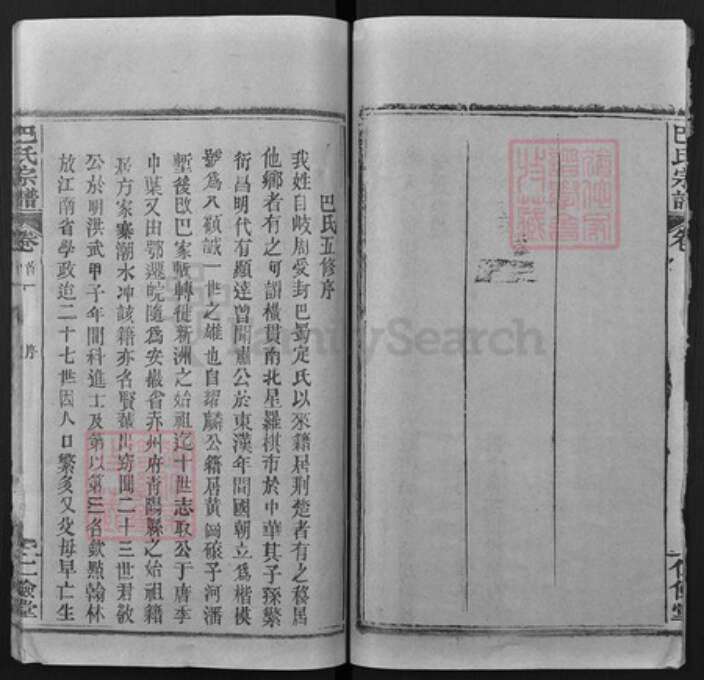 巴氏宗譜
卷
巴氏五修序
我姓自岐周受封巴蜀定氏以來籍居荆楚者有之移居
他鄉者有之可謂橫貫南北星羅棋布於中華其子孫繁
衍昌明代有顯達曾聞肅公於東漢年間國朝立爲楷模
號爲八顧誠一世之雄也自瑞麟公籍居黄岡磙子河潘
塹後改巴家畈轉徙新洲之始祖迄十世志取公于唐李
中葉又由鄂遷皖隨爲安徽省赤州府青陽縣之始祖籍
居方家寨潮水冲該籍亦名賢輩出窃聞二十三世君敏
公於明洪武甲子年間科進士及第以第三名欽點翰林
放江南省學政迨二十七世因人口繁多又父母早亡生
巴氏宗譜
卷首一
序
仁儉堂
FamilySearch